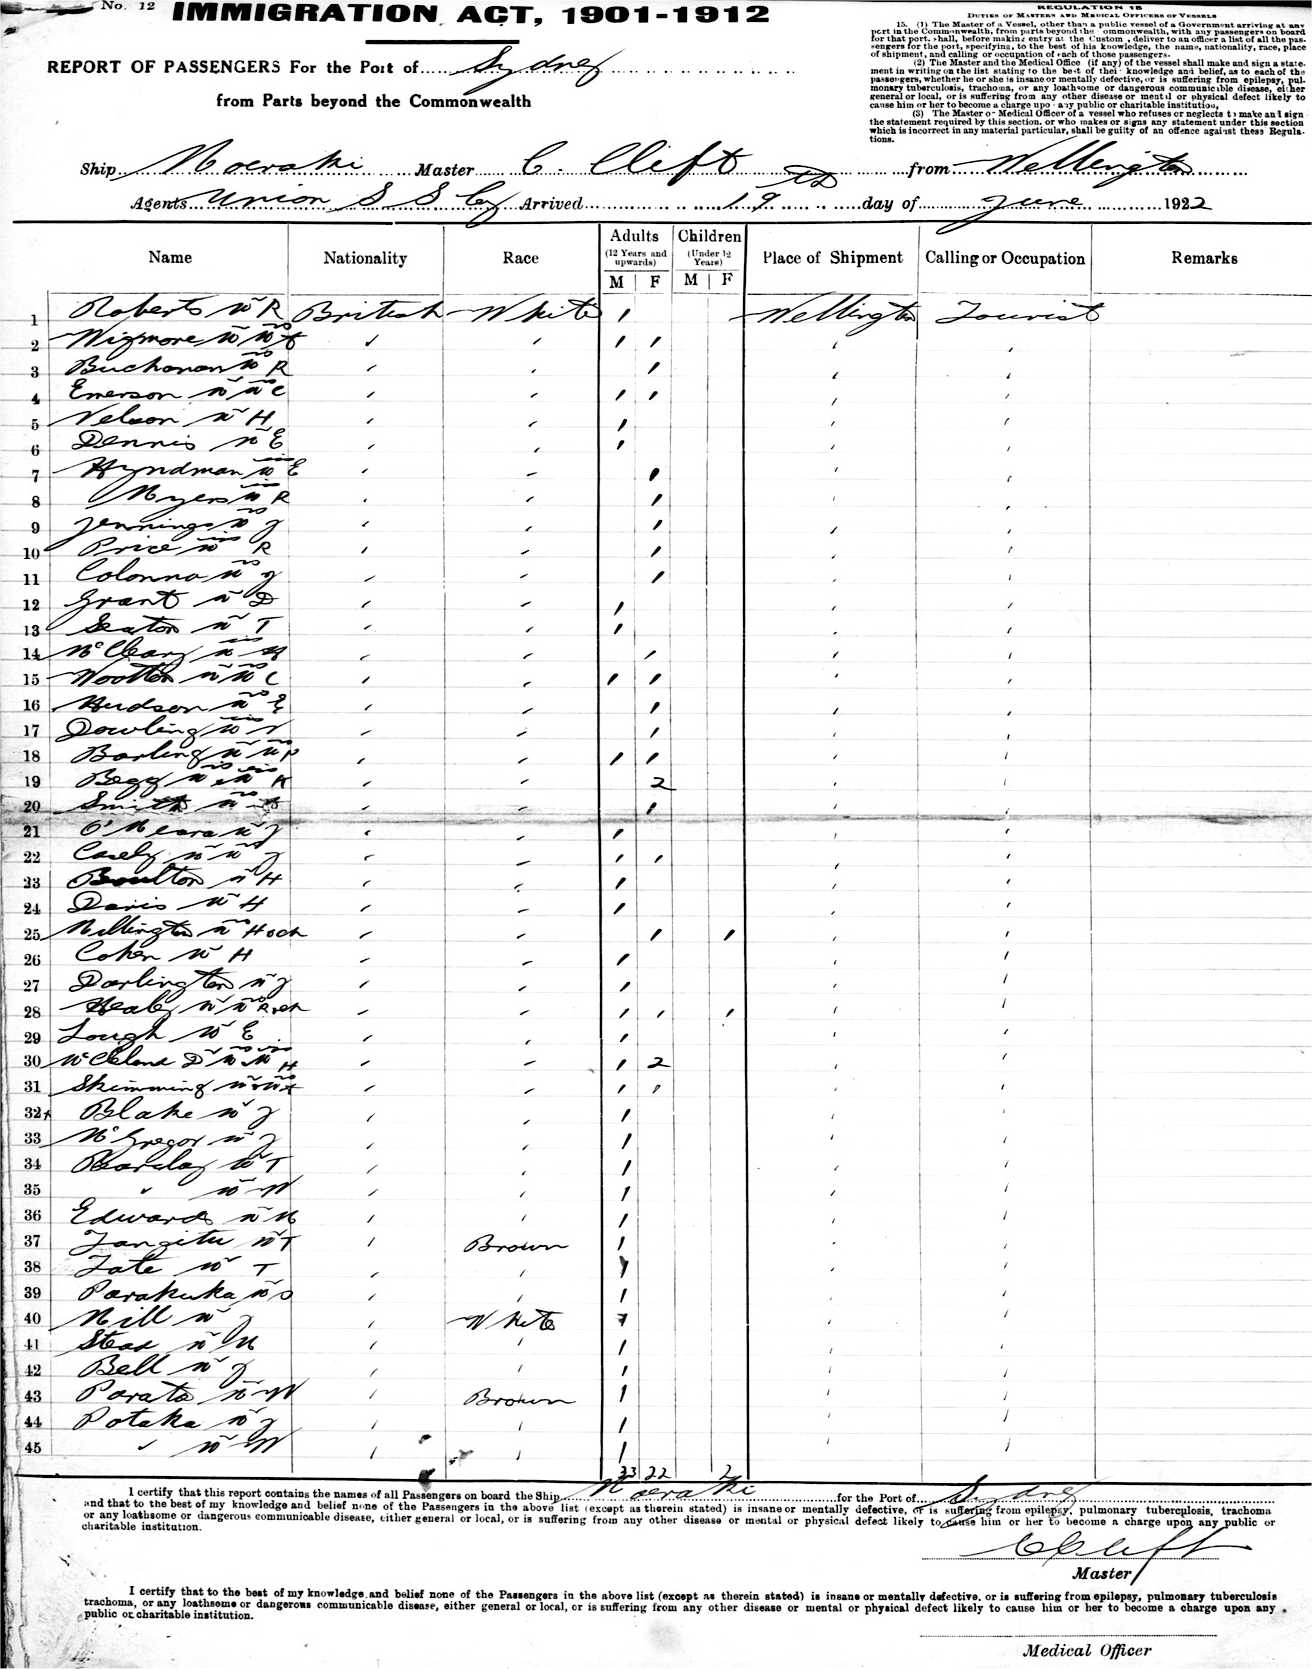 No. 12
IMMIGRATION ACT, 1901-1912
REPORT OF PASSENGERS For the Port of Sydney
from Parts beyond the Commonwealth
REGULATION 15
DUTIES OF MASTERS AND MEDICAL OFFICERS OF VESSELS
15. (1) The Master of a Vessel, other than a public vessel of a Government arriving at any
port in the Commonwealth, from parts beyond the Commonwealth, with any passengers on board
for that port, shall, before making entry at the Customs, deliver to an officer a list of all the pas-
sengers for the port, specifying, to the best of his knowledge, the name, nationality, race, place
of shipment, and calling or occupation of each of those passengers.
(2) The Master and the Medical Office (if any) of the vessel shall make and sign a state-
ment in writing on the list stating to the best of their knowledge and belief, as to each of the
passengers, whether he or she is insane or mentally defective, or is suffering from epilepsy, pul-
monary tuberculosis, trachoma, or any loathsome or dangerous communicable disease, either
general or local, or is suffering from any other disease or mental or physical defect likely to
cause him or her to become a charge upon any public or charitable institution.
(3) The Master or Medical Officer of a vessel who refuses or neglects to make and sign
the statement required by this section, or who makes or signs any statement under this section
which is incorrect in any material particular, shall be guilty of an offence against these Regula-
tions.
Ship Moeraki Master C. Clift from Wellington
Agents Union S S Coy Arrived 19th day of June 1922
Name Nationality Race Adults (12 Years and upwards) M F Children (Under 12 Years) M F Place of Shipment Calling or Occupation Remarks
1 Roberts Mr R British White ' Wellington Tourist
2 Wigmore Mr Mrs A " " ' ' " "
3 Buchanan Mrs R " " ' " "
4 Emerson Mr Mrs C " " ' ' " "
5 Nelson Mr H " " ' " "
6 Dennis Mr E " " ' " "
7 Hyndman Miss E " " ' " "
8 Myers Miss R " " ' " "
9 Jennings Mrs J " " ' " "
10 Price Miss R " " ' " "
11 Colonna Mrs J " " ' " "
12 Grant Mr D " " ' " "
13 Seaton Mr T " " ' " "
14 McCleary Miss " " ' " "
15 Wootton Mr Mrs C " " ' ' " "
16 Hudson Mrs E " " ' " "
17 Dowling Miss " " ' " "
18 Barling Mr Mrs P " " ' ' " "
19 Begg Mrs Miss K " " 2 " "
20 Smith Mrs " " ' " "
21 O'Meara Mr J " " ' " "
22 Casely Mr Mrs J " " ' ' " "
23 Boulton Mr H " " ' " "
24 Davis Mr H " " ' " "
25 Millington Mrs H & ch " " ' ' " "
26 Cohen Mr H " " ' " "
27 Darlington Mr J " " ' " "
28 Healy Mr Mrs R & ch " " ' ' ' " "
29 Lough Mr E " " ' " "
30 McCleland Dr Mrs Miss H " " ' 2 " "
31 Skimming Mr & Mrs A " " ' ' " "
32 Blake Mr J " " ' " "
33 McGregor Mr J " " ' " "
34 Barclay Mr T " " ' " "
35 " Mr W " " ' " "
36 Edwards Mr M " " ' " "
37 Tangitu Mr T " Brown ' " "
38 Tate Mr T " " ' " "
39 Parakuka Mr O " " ' " "
40 Mill Mr J " White ' " "
41 Stead Mr M " " ' " "
42 Bell Mr J " " ' " "
43 Parata Mr W " Brown ' " "
44 Potaka Mr J " " ' " "
45 " Mr W " " ' " "
33 22 2
I certify that this report contains the names of all Passengers on board the Ship Moeraki for the Port of Sydney
and that to the best of my knowledge and belief none of the Passengers in the above list (except as therein stated) is insane or mentally defective, or is suffering from epilepsy, pulmonary tuberculosis, trachoma
or any loathsome or dangerous communicable disease, either general or local, or is suffering from any other disease or mental or physical defect likely to cause him or her to become a charge upon any public or
charitable institution.
C Clift
Master
I certify that to the best of my knowledge and belief none of the Passengers in the above list (except as therein stated) is insane or mentally defective, or is suffering from epilepsy, pulmonary tuberculosis
trachoma, or any loathsome or dangerous communicable disease, either general or local, or is suffering from any other disease or mental or physical defect likely to cause him or her to become a charge upon any
public or charitable institution.
Medical Officer